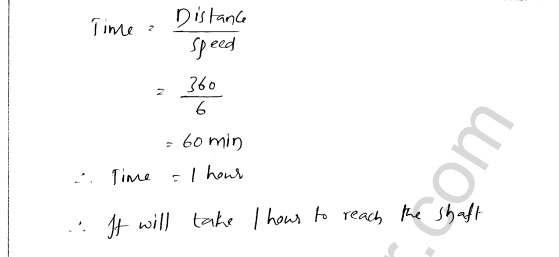 Time = Distance / Speed
= 360 / 6
= 60 min
∴ Time = 1 hour
∴ It will take 1 hour to reach the shaft
r.com